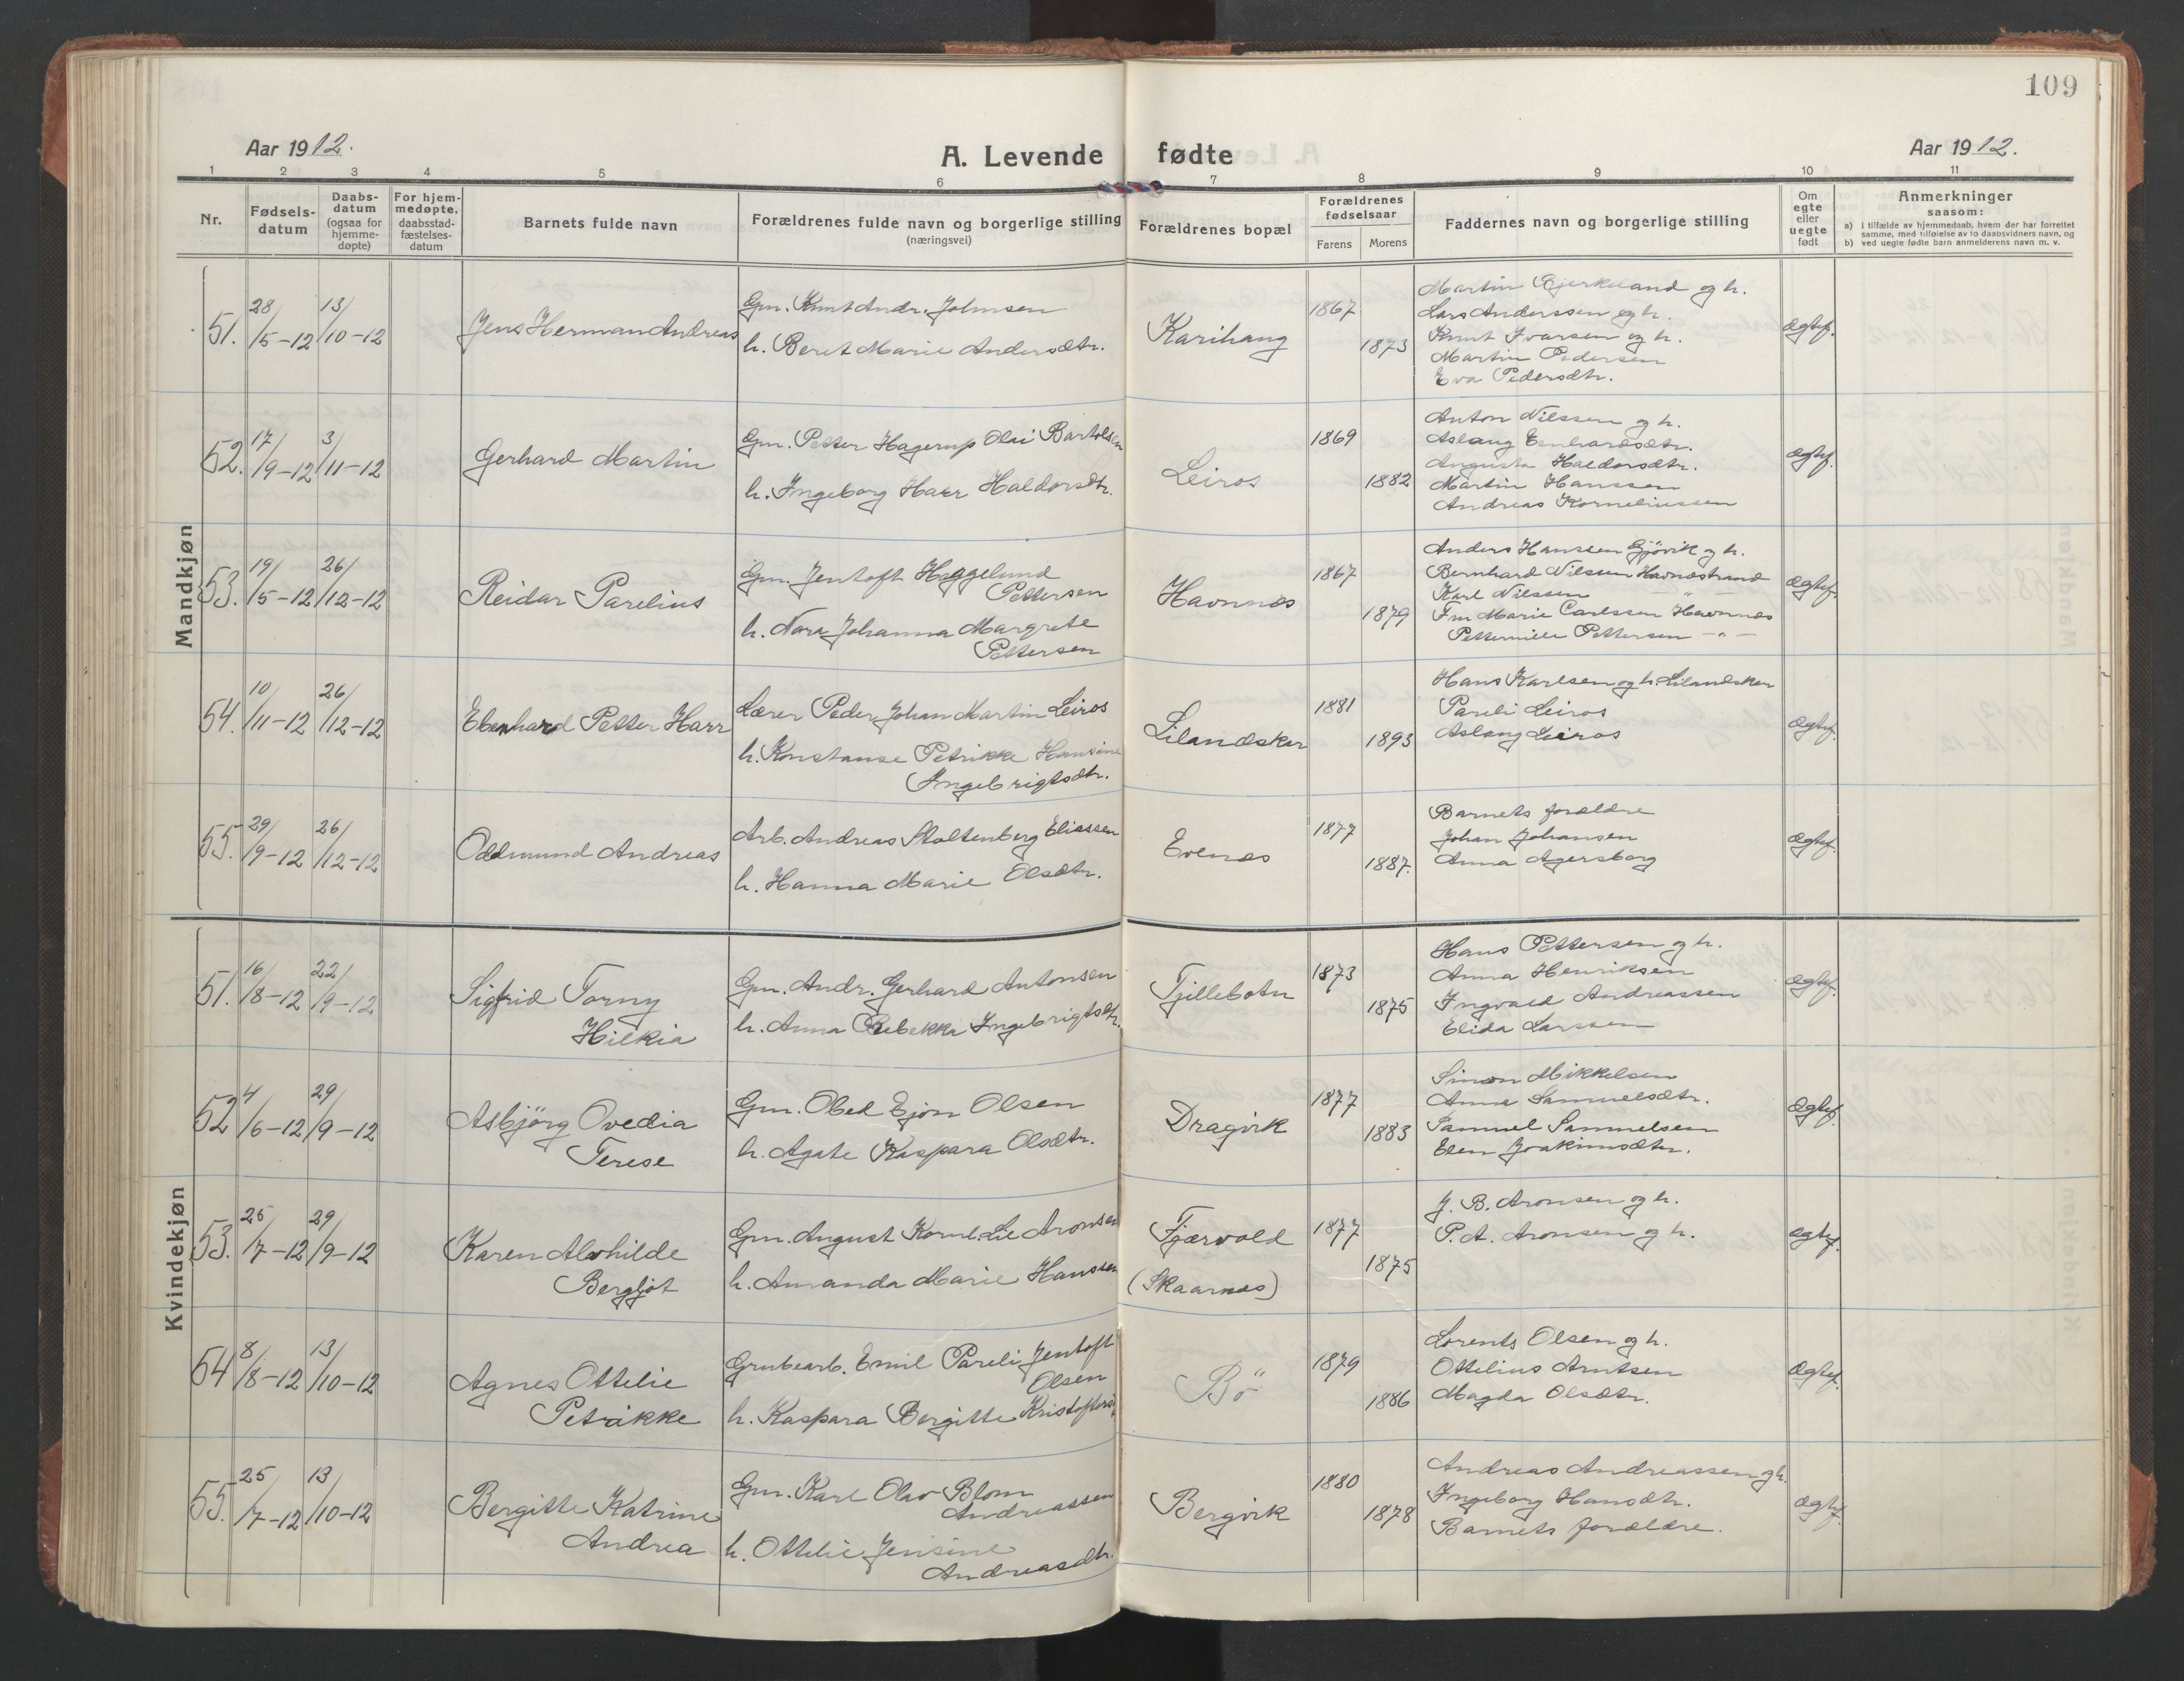 109
Aar 1912.
A. Levende fødte
Aar 1912.
1 2 3 4 5 6 7 8 9 10 11
Nr.
Fødsels-
datum
Daabs-
datum
(ogsaa for
hjemme-
døpte)
For hjem-
medøpte,
daabsstad-
fæstelses-
datum
Barnets fulde navn
Forældrenes fulde navn og borgerlige stilling
(næringsvei)
Forældrenes bopæl
Forældrenes
fødselsaar
Farens Morens
Faddernes navn og borgerlige stilling
Om
egte
eller
uegte
født
Anmerkninger
saasom:
a) i tilfælde av hjemmedaab, hvem der har forrettet
samme, med tilføielse av to daabsvidners navn, og
b) ved uegte fødte barn anmelderens navn m. v.
Mandkjøn
51. 28/5-12 13/10-12
Jens Herman Andreas
Gm. Knut Andr. Johnsen
h. Beret Marie Andersdtr.
Karihaug
1867
1873
Martin Bjerkeland og h.
Lars Anderssen og h.
Knut Ivarsen og h.
Martin Pedersen
Eva Pedersdtr.
ægtef.
52. 17/9-12 3/11-12
Gerhard Martin
Gm. Petter Hagerup Olai Bartolsen
h. Ingeborg Harr Haldorsdtr.
Leiros
1869
1882
Anton Nilssen og h.
Aslaug Eenhardsdtr.
Augusta Haldorsdtr.
Martin Hanssen
Andreas Korneliussen
ægtef.
53. 19/5-12 26/12-12
Reidar Parelius
Gm. Jentoft Heggelund
Pettersen
h. Nora Johanna Margrete
Pettersen
Havnnes
1867
1879
Anders Hanssen Gjövik og h.
Bernhard Nilssen Havnnesstrand
Karl Nilssen — " —
Fru Marie Carlssen Havnnes
Petternille Pettersen — " —
ægtef.
54. 10/11-12 26/12-12
Ebenhard Petter Harr
Lærer Peder Johan Martin Leiros
h. Konstanse Petrikke Hansine
Ingebrigtsdtr.
Lilandskar
1881
1893
Hans Karlsen og h. Lilandskar
Pareli Leiros
Aslaug Leiros
ægtef.
55. 29/9-12 26/12-12
Oddmund Andreas
Arb. Andreas Stoltenberg Eliassen
h. Hanna Marie Olsdtr.
Evenes
1877
1887.
Barnets forældre
Johan Johansen
Anna Agersborg
ægtef.
Kvindekjøn
51. 16/8-12 22/9-12
Sigfrid Torny
Hilkia
Gm. Andr. Gerhard Antonsen
h. Anna Rebekka Ingebrigtsdtr.
Tjillebotn
1873
1875
Hans Pettersen og h.
Anna Henriksen
Ingvald Andreassen
Elida Larssen
ægtef.
52 4/6-12 29/9-12
Asbjörg Ovedia
Terese
Gm. Obed Ejon Olsen
h. Agate Kaspara Olsdtr.
Dragvik
1877
1883
Simon Mikkelsen
Anna Samuelsdtr.
Samuel Sammelsen
Elen Joakimsdtr.
ægtef.
53. 25/7-12 29/9-12
Karen Alvhilde
Bergljot
Gm. August Kornl. Lie Aronsen
h. Amanda Marie Hanssen
Fjærvold
(Skaarnes)
1877
1875
J. B. Aronsen og h.
P. A. Aronsen og h.
ægtef.
54 8/8-12 13/10-12
Agnes Ottilie
Petrikke
Grubearb. Emil Pareli Jentoft
Olsen
h. Kaspara Bergitte Kristoffersd.
Bö
1879
1886
Lorents Olsen og h.
Ottilius Arntsen
Magda Olsdtr.
ægtef.
55. 25/7-12 13/10-12
Bergitte Katrine
Andrea
Gm. Karl Olav Blom
Andreassen
h. Ottilie Jensine
Andreasdtr.
Bergvik
1880
1878
Andreas Andreassen og h.
Ingeborg Hansdtr.
Barnets forældre.
ægtef.